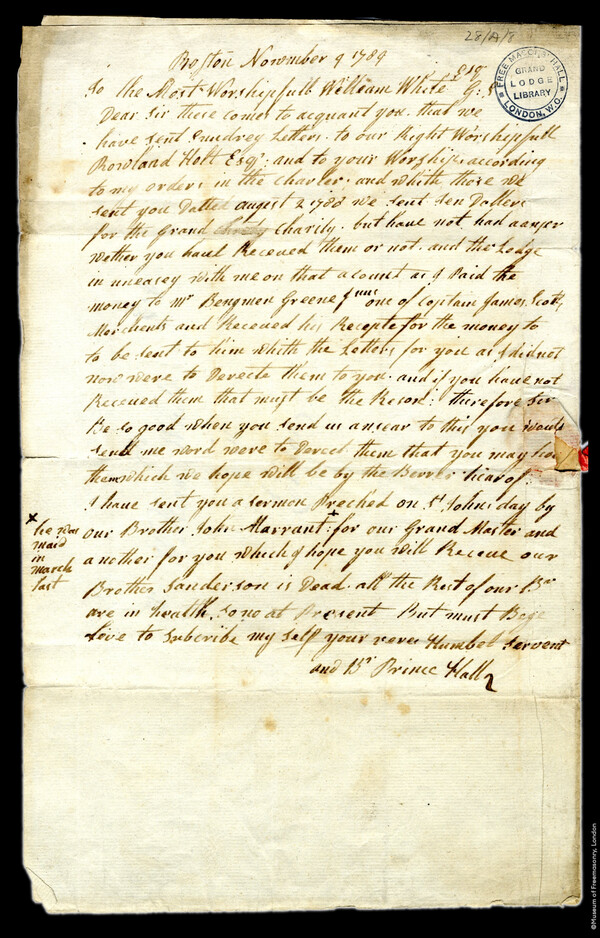 28/A/8
FREE MASONS HALL
GRAND
LODGE
LIBRARY
LONDON, W.C.
Boston November 9 1789
Esqr
To the Most Worshipfull William White G: S
Dear Sir these comes to acquant you that we
have sent Sundrey Letters to our Right Worshipfull
Rowland Holt Esqr and to your Worship according
to my orders in the Charter and whith those we
sent you Datted august 2 1788 we sent ten Dollers
for the Grand Charity but have not had
wether you have Receved them or not and the Lodge
in uneasey with me on that acount as I Paid the
money to Mr Bengmen Greene Junr one of Coptain James Scotts
Merchents and Receved his Recepte for the money to
to be sent to him whith the Letters for you as I did not
now were to Derecte them to you and if you have not
Receved them that must be the Reson: therefore Sir
Be so good when you send us ansear to this you would
send me word were to Derect them that you may have
them which we hope will be by the Berrer hearof
I have sent you a Sermon Preched on St Johns day by
our Brother John Marrant + for our Grand Master and
another for you which I hope you will Receve our
Brother Sanderson is Dead all the Rest of our Brn
are in health so no at Present But must Beg
Live to Subcribe my Self your ever Humbel Servent
and Br Prince Hall
x he was
maid
in
march
last
©Museum of Freemasonry, London